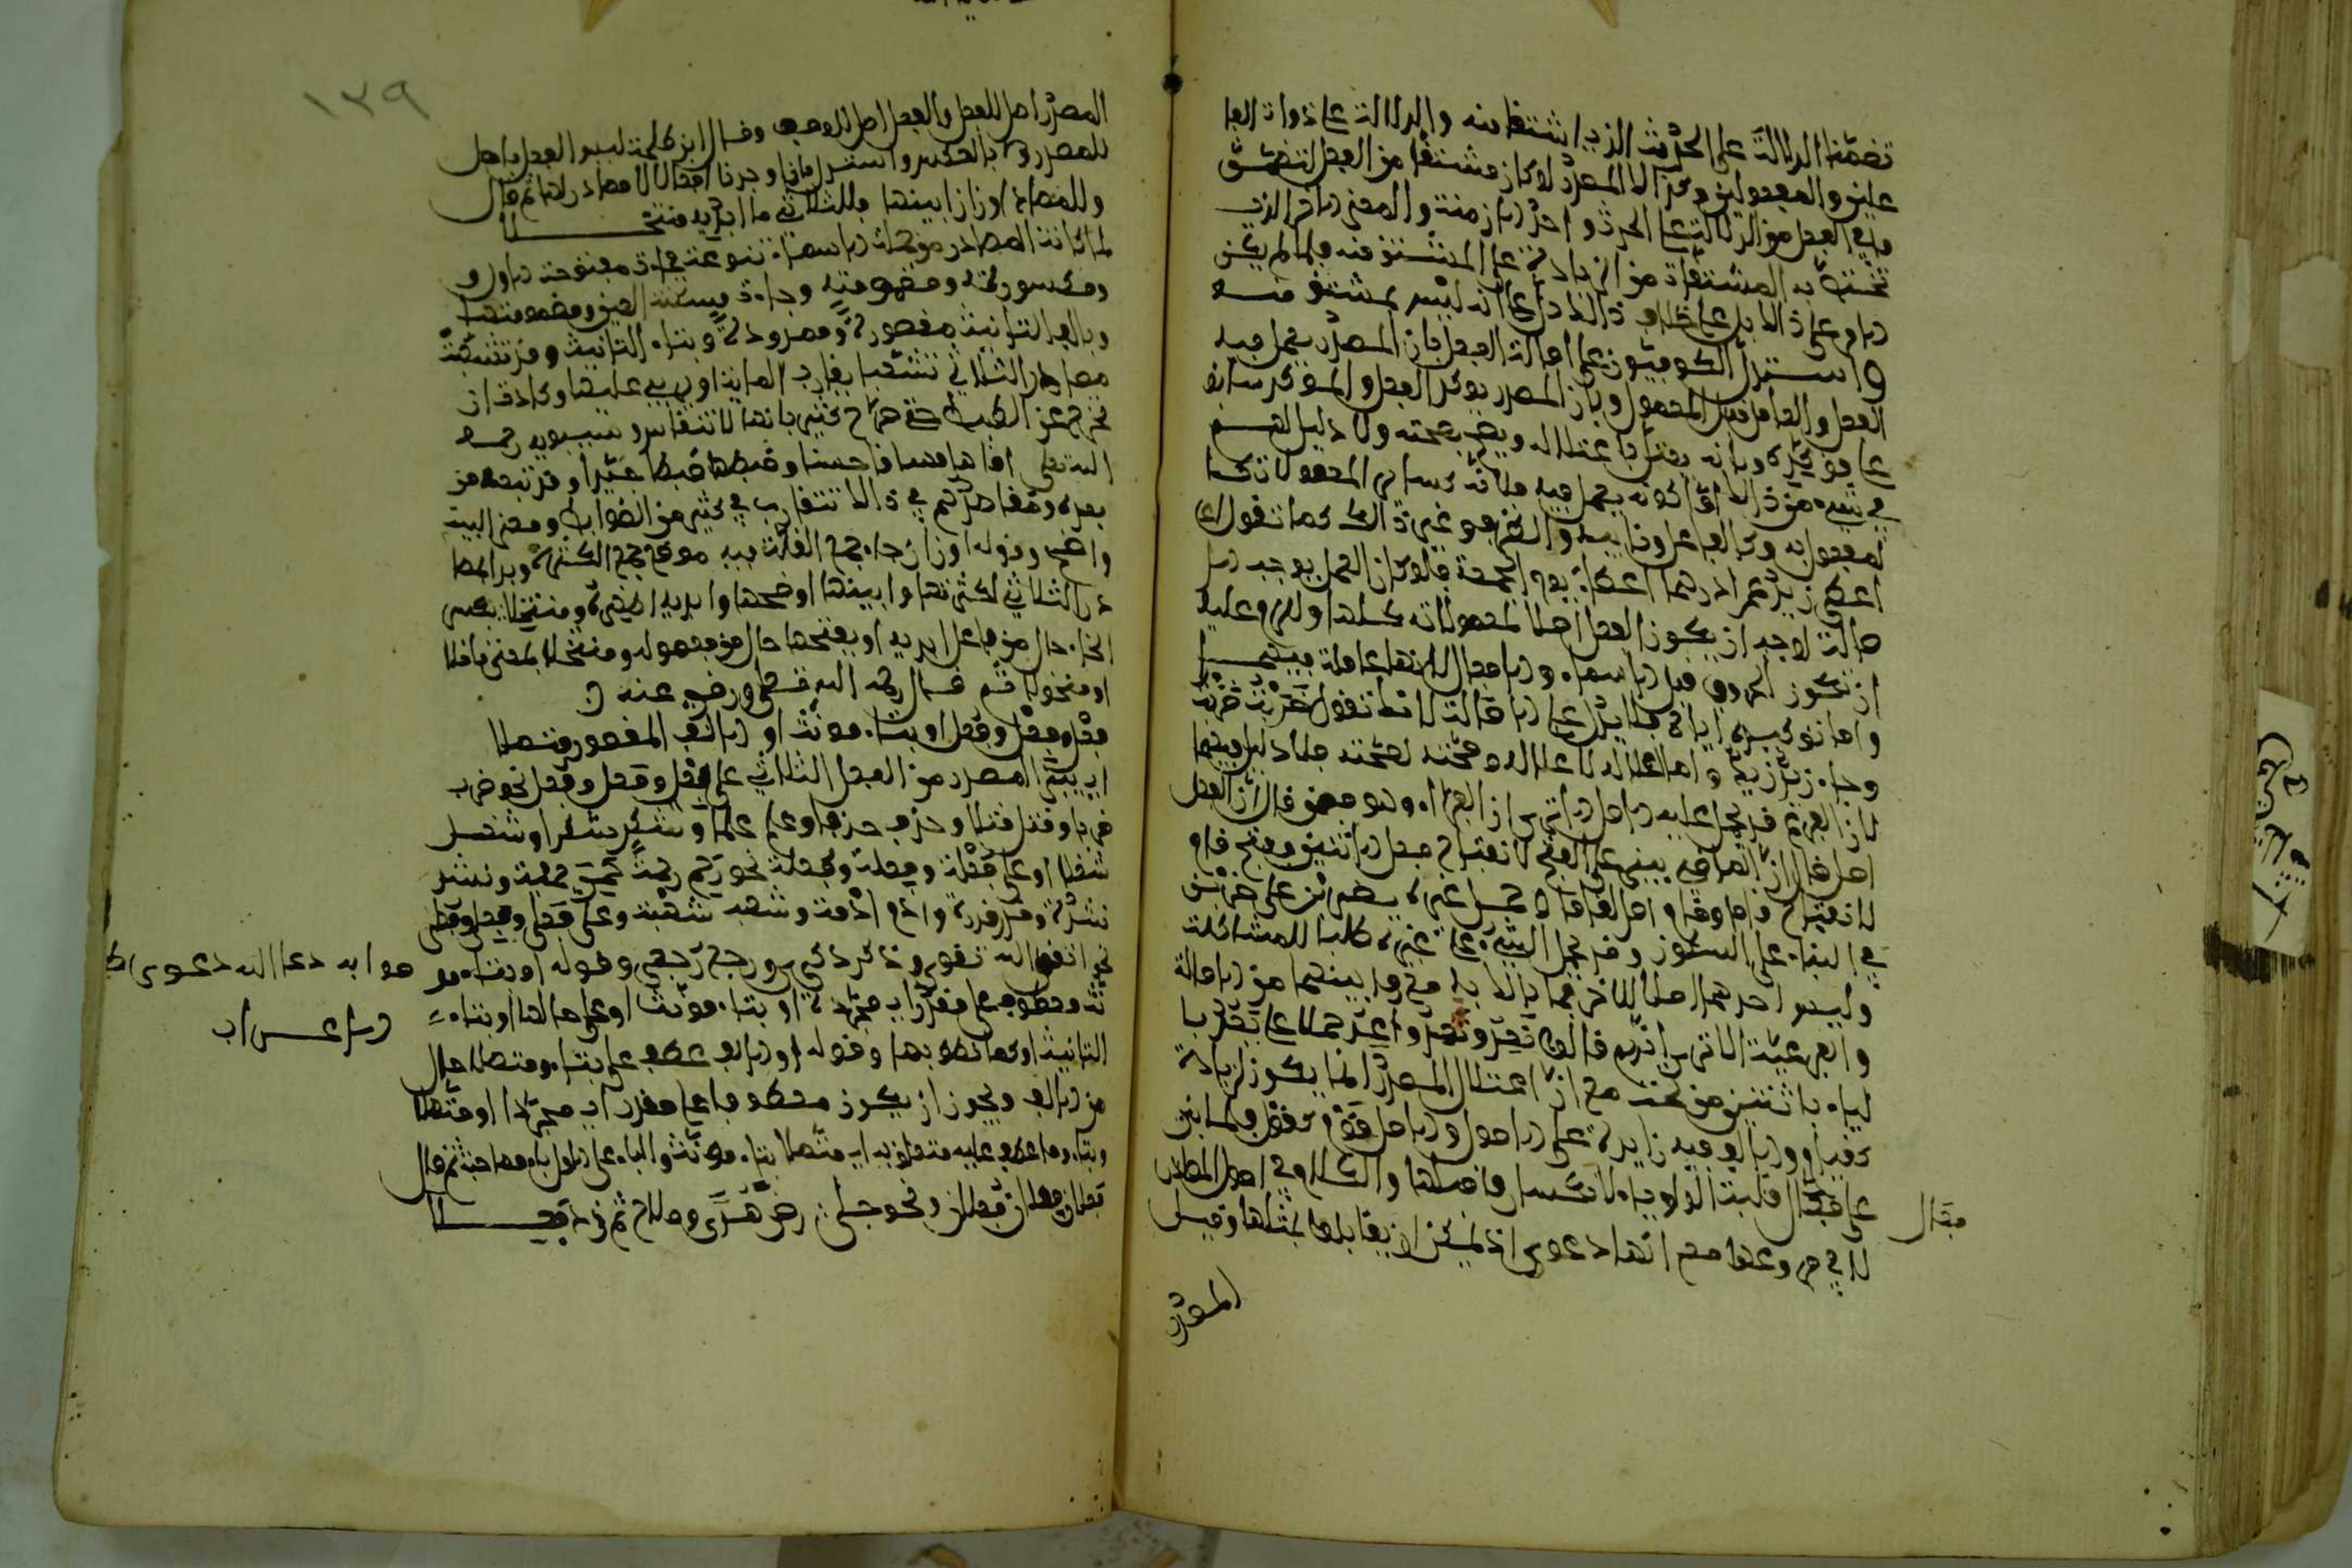 تضمنها الدلالة على الحدث الذي اشتقا منه والدلالة على ذوات الفا
علين والمفعولين وكذلك المصدر لو كان مشتقا من الفعل لتضمن
ما في الفعل من الدلالة على الحدث واحد الازمنة والمعنى الاخر الذي
تختص به المشتقات من الزيادة على المشتق منه فلما لم يكن
الامر على ذلك بل على خلاف ذلك دل على انه ليس بمشتق منه
واستدل الكوفيون على اصالة الفعل بان المصدر يعمل فيه
الفعل والعامل قبل المعمول وبان المصدر يوكد الفعل والموكد سابق
على موكده وبانه يعتل باعتلاله ويصح بصحته ولا دليل لهم
في شيء من ذلك اما كونه يعمل فيه فلانه كساير المعمولات كا
لمفعول به وكالفاعل ونايبه والظرف وغير ذلك كما تقول
اعطى زيد عمرا درهما اعطاء يوم الجمعة فلو كان العمل يوجب الا
صالة لوجب ان يكون الفعل اصلا لمعمولاته كلها ولزم عليه
ان تكون الحروف قبل الاسماء والافعال لانها عاملة فيهما
واما توكيده اياه فلا يدل على الاصالة لانك تقول ضربت ضربت
وجاء زيد زيد واما اعلاله لاعلاله وصحته لصحته فلا دليل فيهما
لان الفرع قد يحمل عليه الاصل الا ترى ان الفراء وهو ممن قال ان الفعل
اصل قال ان الماضي بني على الفتح لانفتاح فعل الاثنين وفتح قام
لانفتاح قاما وقام اصل لقاما وحمل غيره يضربن على ضربن
في البناء على السكون وقد يحمل الشيء على غيره طلبا للمشاكلة
وليس احدهما اصلا للاخر فما بالك به مع ما بينهما من الاصالة
والفرعية الا ترى انهم قالوا تعد ونعد واعد حملا على يعد يا
لياء باثنتين من تحت مع ان اعتلال المصدر انما يكون لزيادة
كقيام والالف فيه زايدة على الاصول والاصل قوم كقول فلما بني
على فعال قلبت الواو ياء لانكسار ما قبلها والكلام في اصل المصادر
لا في فروعها مع انها دعوى اذ يمكن ان يقابلها بمثلها وقيل
فعال
المصدر
١٣٩
المصدر اصل للفعل والفعل اصل للوصف وقال ابن طلحة ليس الفعل باصل
للمصدر ولا بالعكس واستدل بانا وجدنا افعالا لا مصادر لها ثم قال
وللمصادر اوزان ابينها فللثلاثي ما ابديه منتخلا
لما كانت المصادر من جملة الاسماء تنوعت فجاءت مفتوحة الاول و
ومكسورته ومضمومته وجاءت مسكنة العين ومضمومتها
وبالف التانيث مقصورة وممدودة وبتاء التانيث وقد تشعبت
مصادر الثلاثي تشعبا يقارب المائة او يربي عليها وكادت ان
تخرج عن الضبط حتى صرح كثير بانها لا تنقاس وسيبويه رحمه
الله تعالى اقامها قياسا حسنا وضبطها ضبطا جيدا وقد تبعه من
بعده ومقاصدهم في ذلك تتقارب في كثير من الضوابط ومعنى البيت
واضح وقوله اوزان جاء بجمع القلة فيه موضع جمع الكثرة وبدا بمصا
در الثلاثي لكثرتها وابينها اوضحها وابديه اظهره ومنتخلا بكسر
الخاء حال من فاعل ابديه او بفتحها حال من مفعوله ومنتخلا بمعنى ناخلا
او منخولا ثم قال رحمه الله تعالى ورضي عنه
فعل وفعل وفعل او بتاء مونث او الالف المقصور متصلا
اي بني المصدر من الفعل الثلاثي على فعل وفعل وفعل نحو ضرب
ضربا وقتل قتلا وحزم حزما وعلم علما وشكر شكرا وشغل
شغلا او على فعلة وفعلة وفعلة نحو رحم رحمة وحمى حمية ونشد
نشدة وقدر قدرة وادم ادمة وشهب شهبة وعلى فعلى وفعلى وفعلى
نحو اتقى الله تقوى وذكر ذكرى ورجع رجعى وقوله او بتاء مو
نث معطوف على مفرد اي مجردة او بتاء مونث او على حالها او بتاء
التانيث او كما نطق بها وقوله او الالف عطف على بتاء ومتصلا حال
من الالف ويجوز ان يكون معطوفا على مفرد اي مجردا او متصلا
وبتاء وما عطف عليه متعلق به اي متصلا بتاء مونث والباء على الاول باء مصاحبة ثم قال
فعلان فعلان فعلان ونحو جلى رضى هدى وصلاح ثم زد فعلا
صوابه دعا الله دعوى